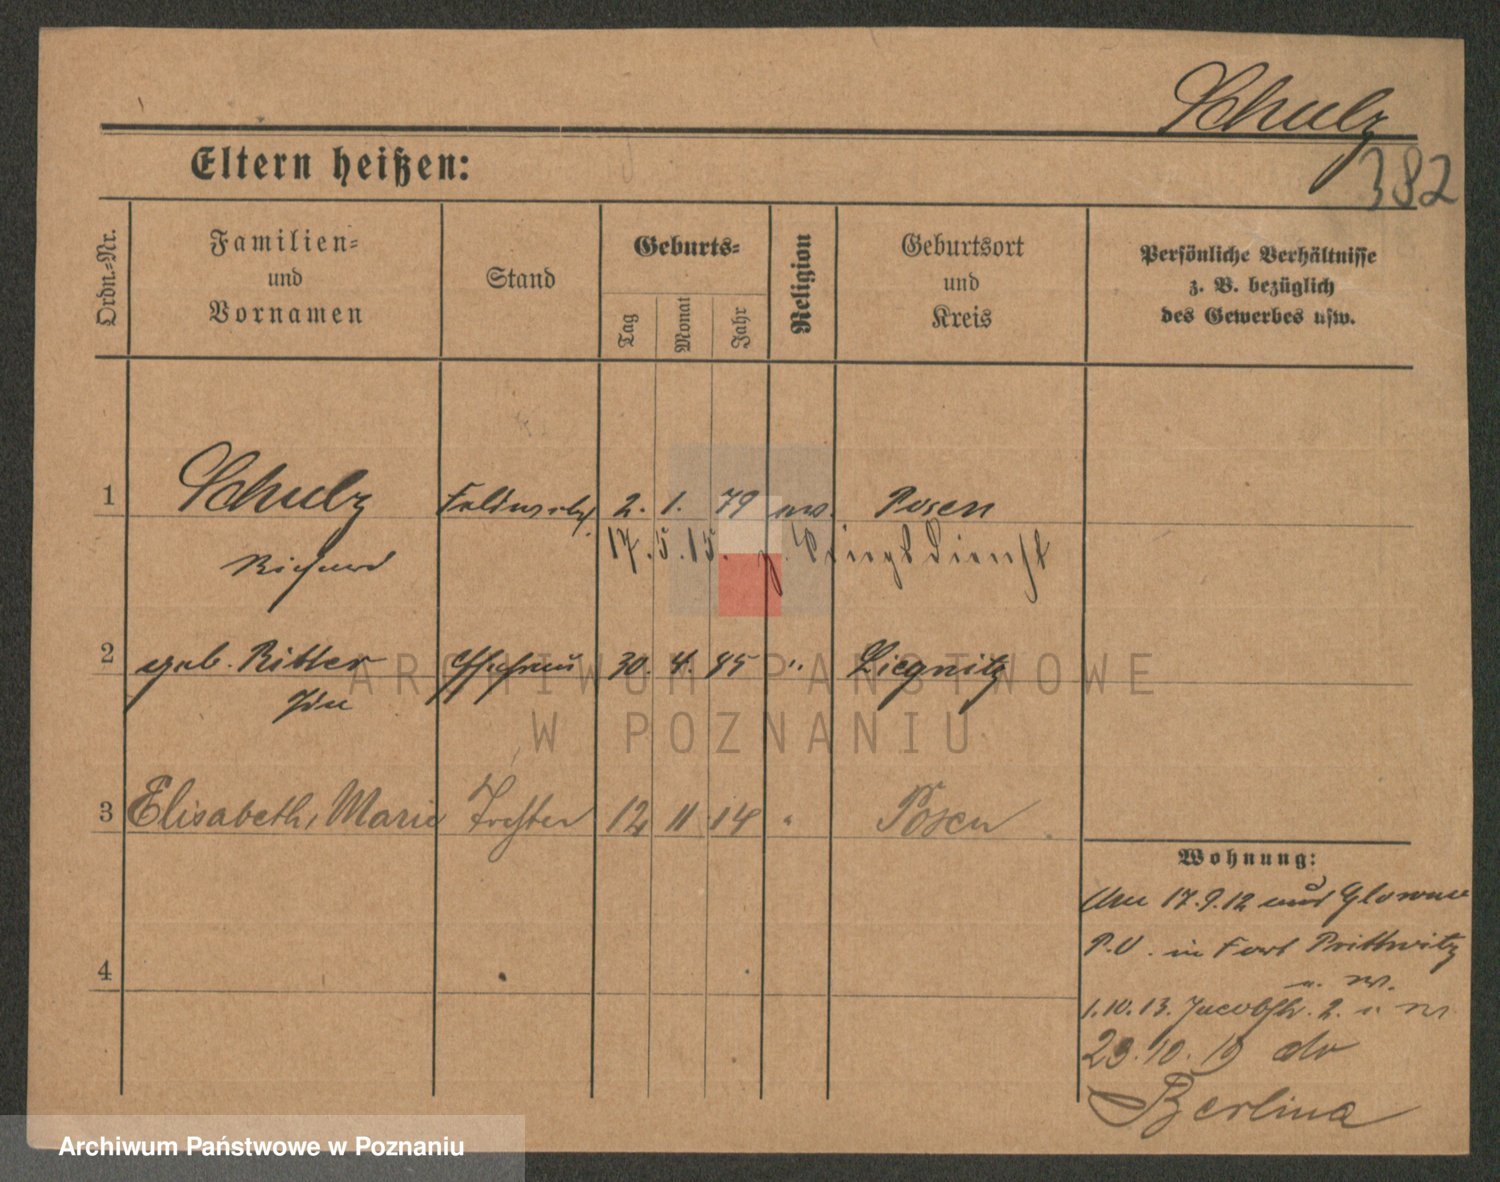 Schulz
382
Eltern heißen:
Ordn.-Nr.
Familien-
und
Vornamen
Stand
Geburts-
Tag
Monat
Jahr
Religion
Geburtsort
und
Kreis
Persönliche Verhältnisse
z. B. bezüglich
des Gewerbes usw.
1 Schulz Feldwebel 2. 1. 79 ev. Posen
Richard 17.5.15. z. Kriegsdienst
2 geb. Ritter Ehefrau 30. 4. 85 " Liegnitz
Ida
3 Elisabeth, Marie Tochter 12 11 14 " Posen
4
Wohnung:
17.9.12 Glowno
P.V. in Fort Prittwitz
u. W.
1.10.13. Jacobstr. 2.
23.10.19
Berlina
ARCHIWUM PAŃSTWOWE
W POZNANIU
Archiwum Państwowe w Poznaniu